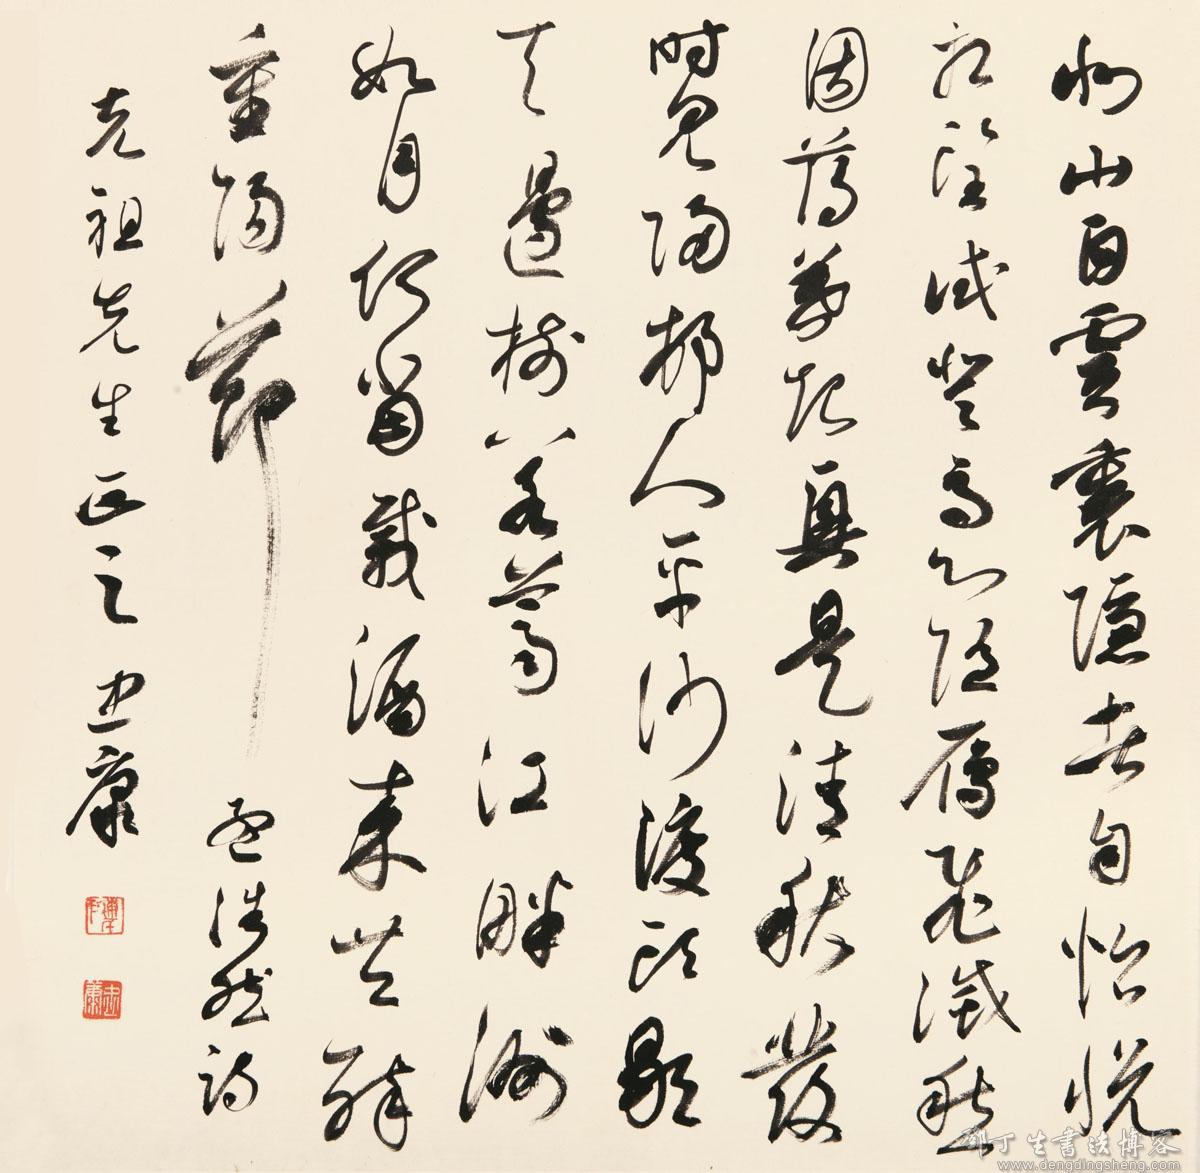 北山白雲裏隱者自怡悅
相望試登高心隨雁飛滅愁
因薄暮起興是清秋發
時見歸邨人平沙渡頭歇
天邊樹若薺江畔洲
如月何當載酒來共醉
重陽節 孟浩然詩
克祖先生正之 忠康
邓丁生书法博客
www.dengdingsheng.com